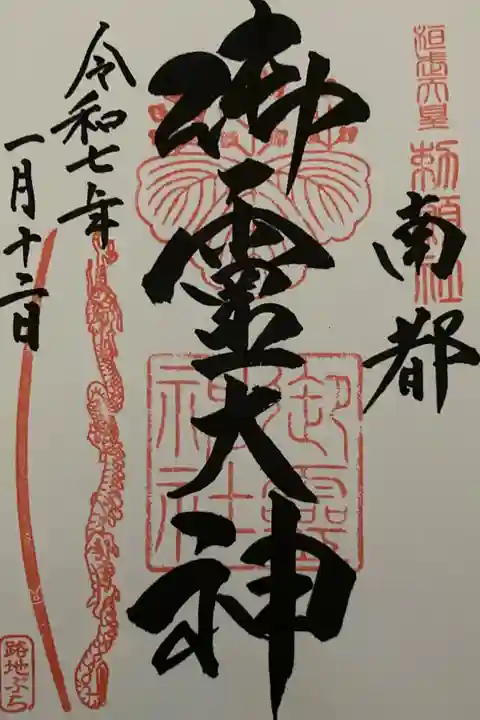 桓武天皇
勅願社
南都
御靈大神
御靈
神社
令和七年
一月十二日
路地ぶち